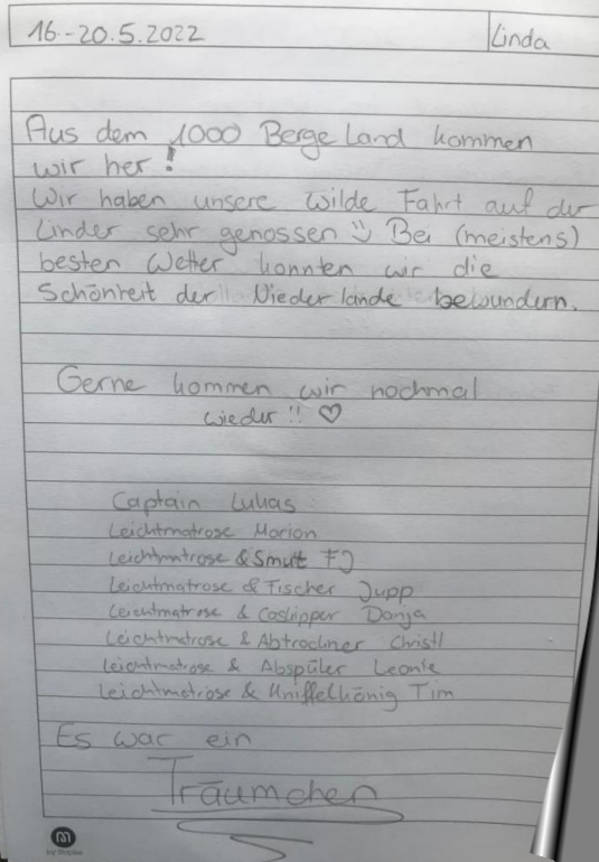 16.-20.5.2022
Linda
Aus dem 1000 Berge Land kommen
wir her!
Wir haben unsere wilde Fahrt auf der
Linder sehr genossen Bei (meistens)
besten Wetter konnten wir die
Schönheit der Niederlande bewundern.
Gerne kommen wir nochmal
wieder!! ♡
Captain Lukas
Leichtmatrose Marion
Leichtmatrose & Smutt FJ
Leichtmatrose & Fischer Jupp
Leichtmatrose & Danja
Leichtmatrose & Abtrockner Christl
Leichtmatrose & Abspüler Leonie
Leichtmatrose & Kniffelkönig Tim
Es war ein
Träumchen